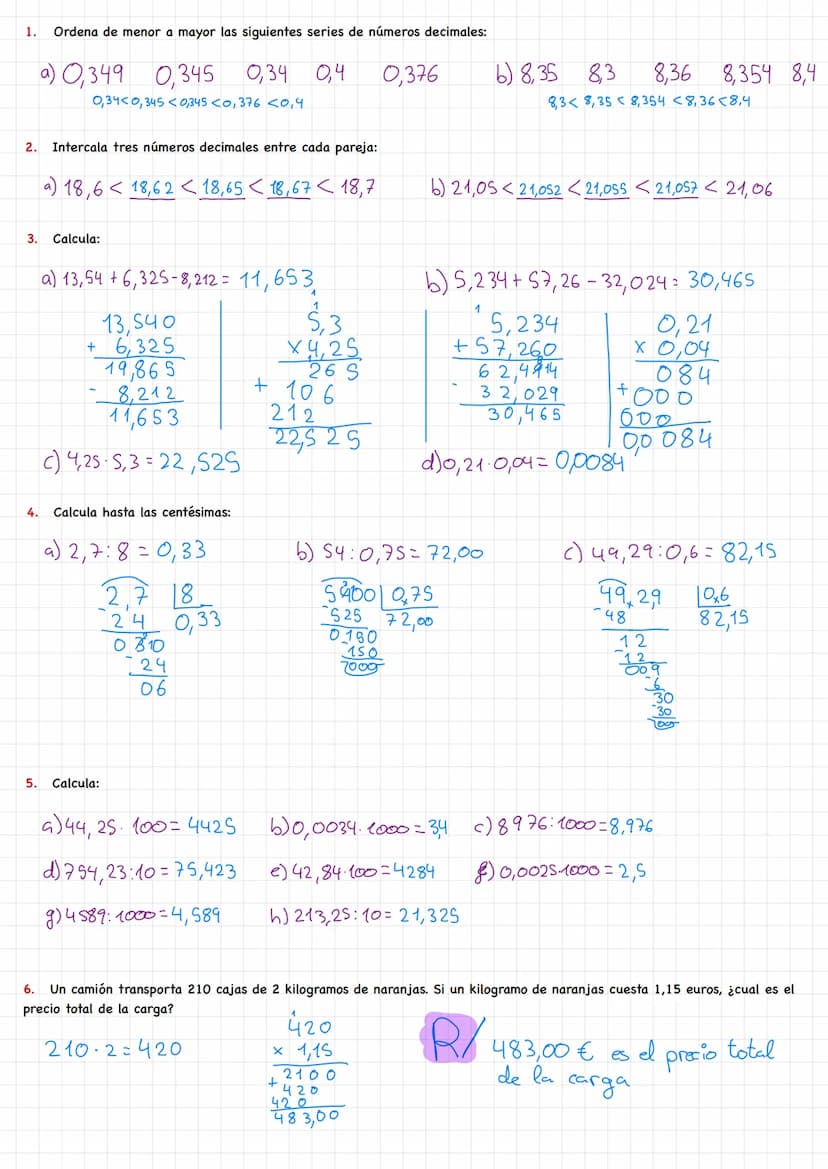 1. Ordena de menor a mayor las siguientes series de números decimales:
a) 0,349 0,345 0,34 0,4 0,376 b) 8,35 8,3 8,36 8,354 8,4
0,34<0,345<0,345<0,376<0,4 8,3< 8,35 < 8,354 <8,36<8,4
2. Intercala tres números decimales entre cada pareja:
a) 18,6 < 18,62 < 18,65 < 18,67 < 18,7 b) 21,05 < 21,052 < 21,055 < 21,057 < 21,06
3. Calcula:
a) 13,54 + 6,325 - 8,212 = 11,653 b) 5,234 + 57,26 - 32,024 = 30,465
13,540
+ 6,325
19,865
- 8,212
11,653
1
1
5,3
x 4,25
265
+ 106
212
22,525
1
5,234
+ 57,260
62,494
- 32,029
30,465
0,21
x 0,04
084
+ 000
000
0,0084
c) 4,25 · 5,3 = 22,525 d) 0,21 · 0,04 = 0,0084
4. Calcula hasta las centésimas:
a) 2,7 : 8 = 0,33 b) 54 : 0,75 = 72,00 c) 49,29 : 0,6 = 82,15
2,7 8
- 24 0,33
0 310
- 24
06
5400 0,75
- 525 72,00
0150
- 150
000
49,2,9 0,6
- 48 82,15
12
- 12
009
- 6
30
- 30
00
5. Calcula:
a) 44,25 · 100 = 4425 b) 0,0034 · 1000 = 3,4 c) 8976 : 1000 = 8,976
d) 754,23 : 10 = 75,423 e) 42,84 · 100 = 4284 f) 0,0025 · 1000 = 2,5
g) 4589 : 1000 = 4,589 h) 213,25 : 10 = 21,325
6. Un camión transporta 210 cajas de 2 kilogramos de naranjas. Si un kilogramo de naranjas cuesta 1,15 euros, ¿cual es el
precio total de la carga?
210 · 2 = 420
1
420
x 1,15
2100
+ 420
420
483,00
R/ 483,00 € es el precio total
de la carga